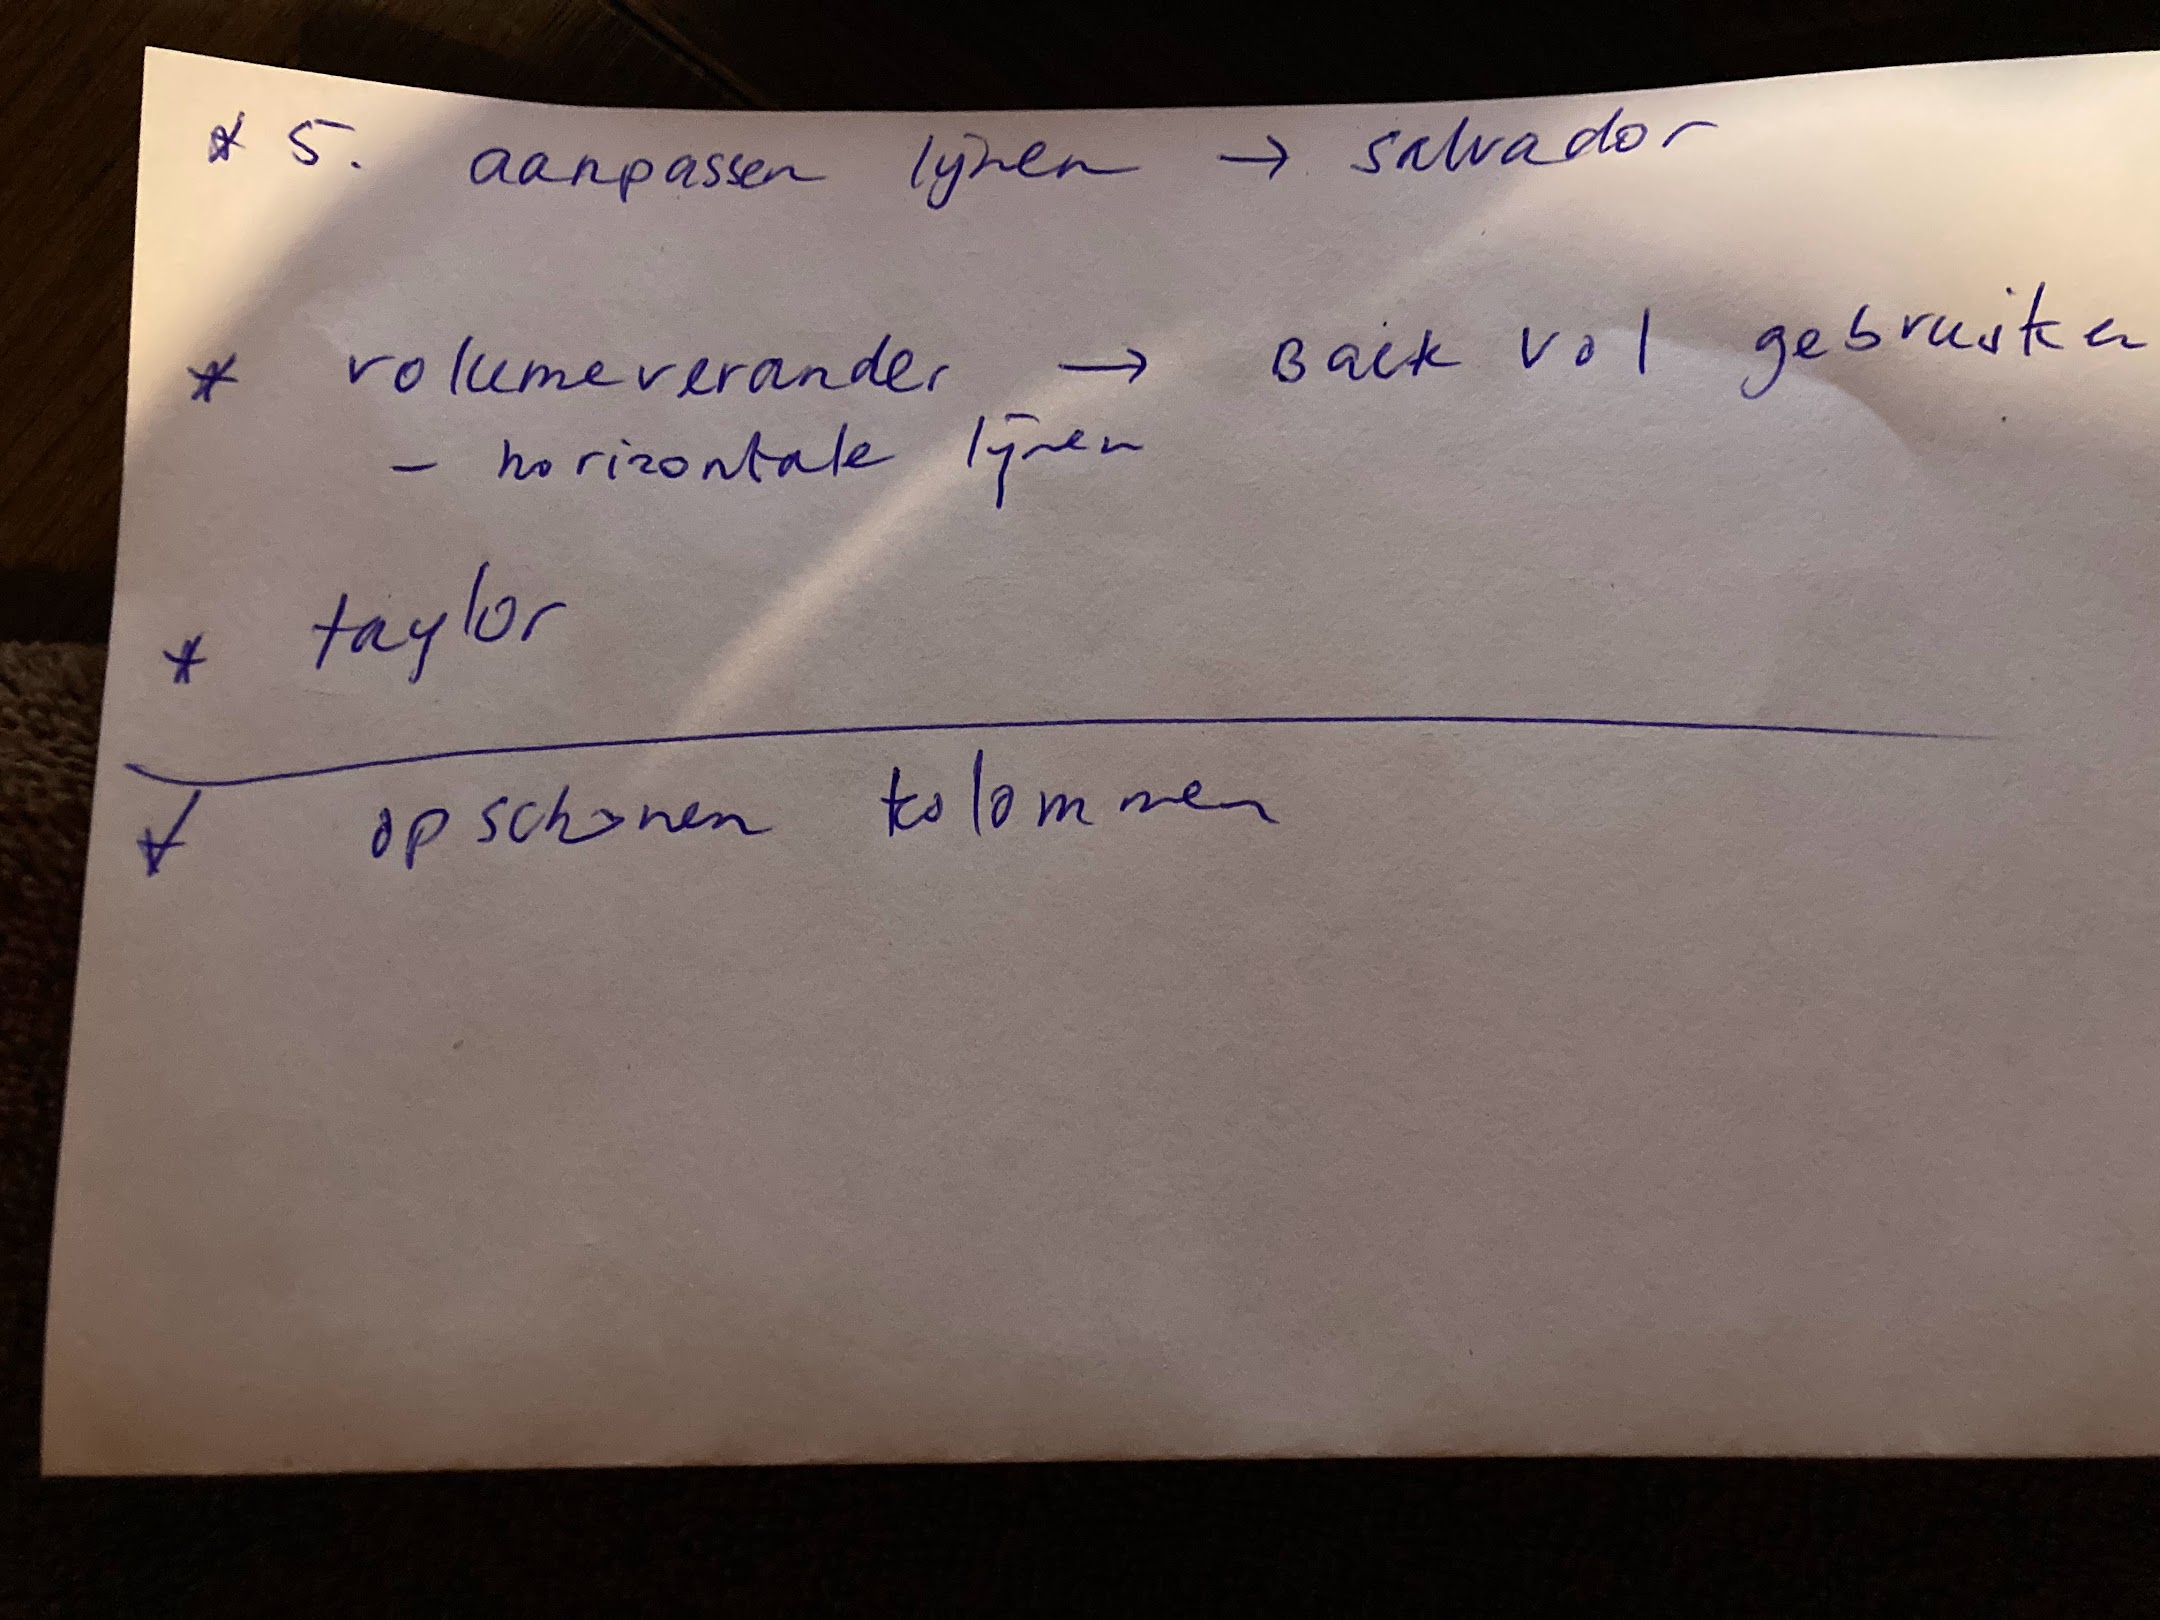 * 5. aanpassen lijnen → salvador
* volumeverander → Back vol gebruiken
- horizontale lijnen
* taylor
* opschonen kolommen